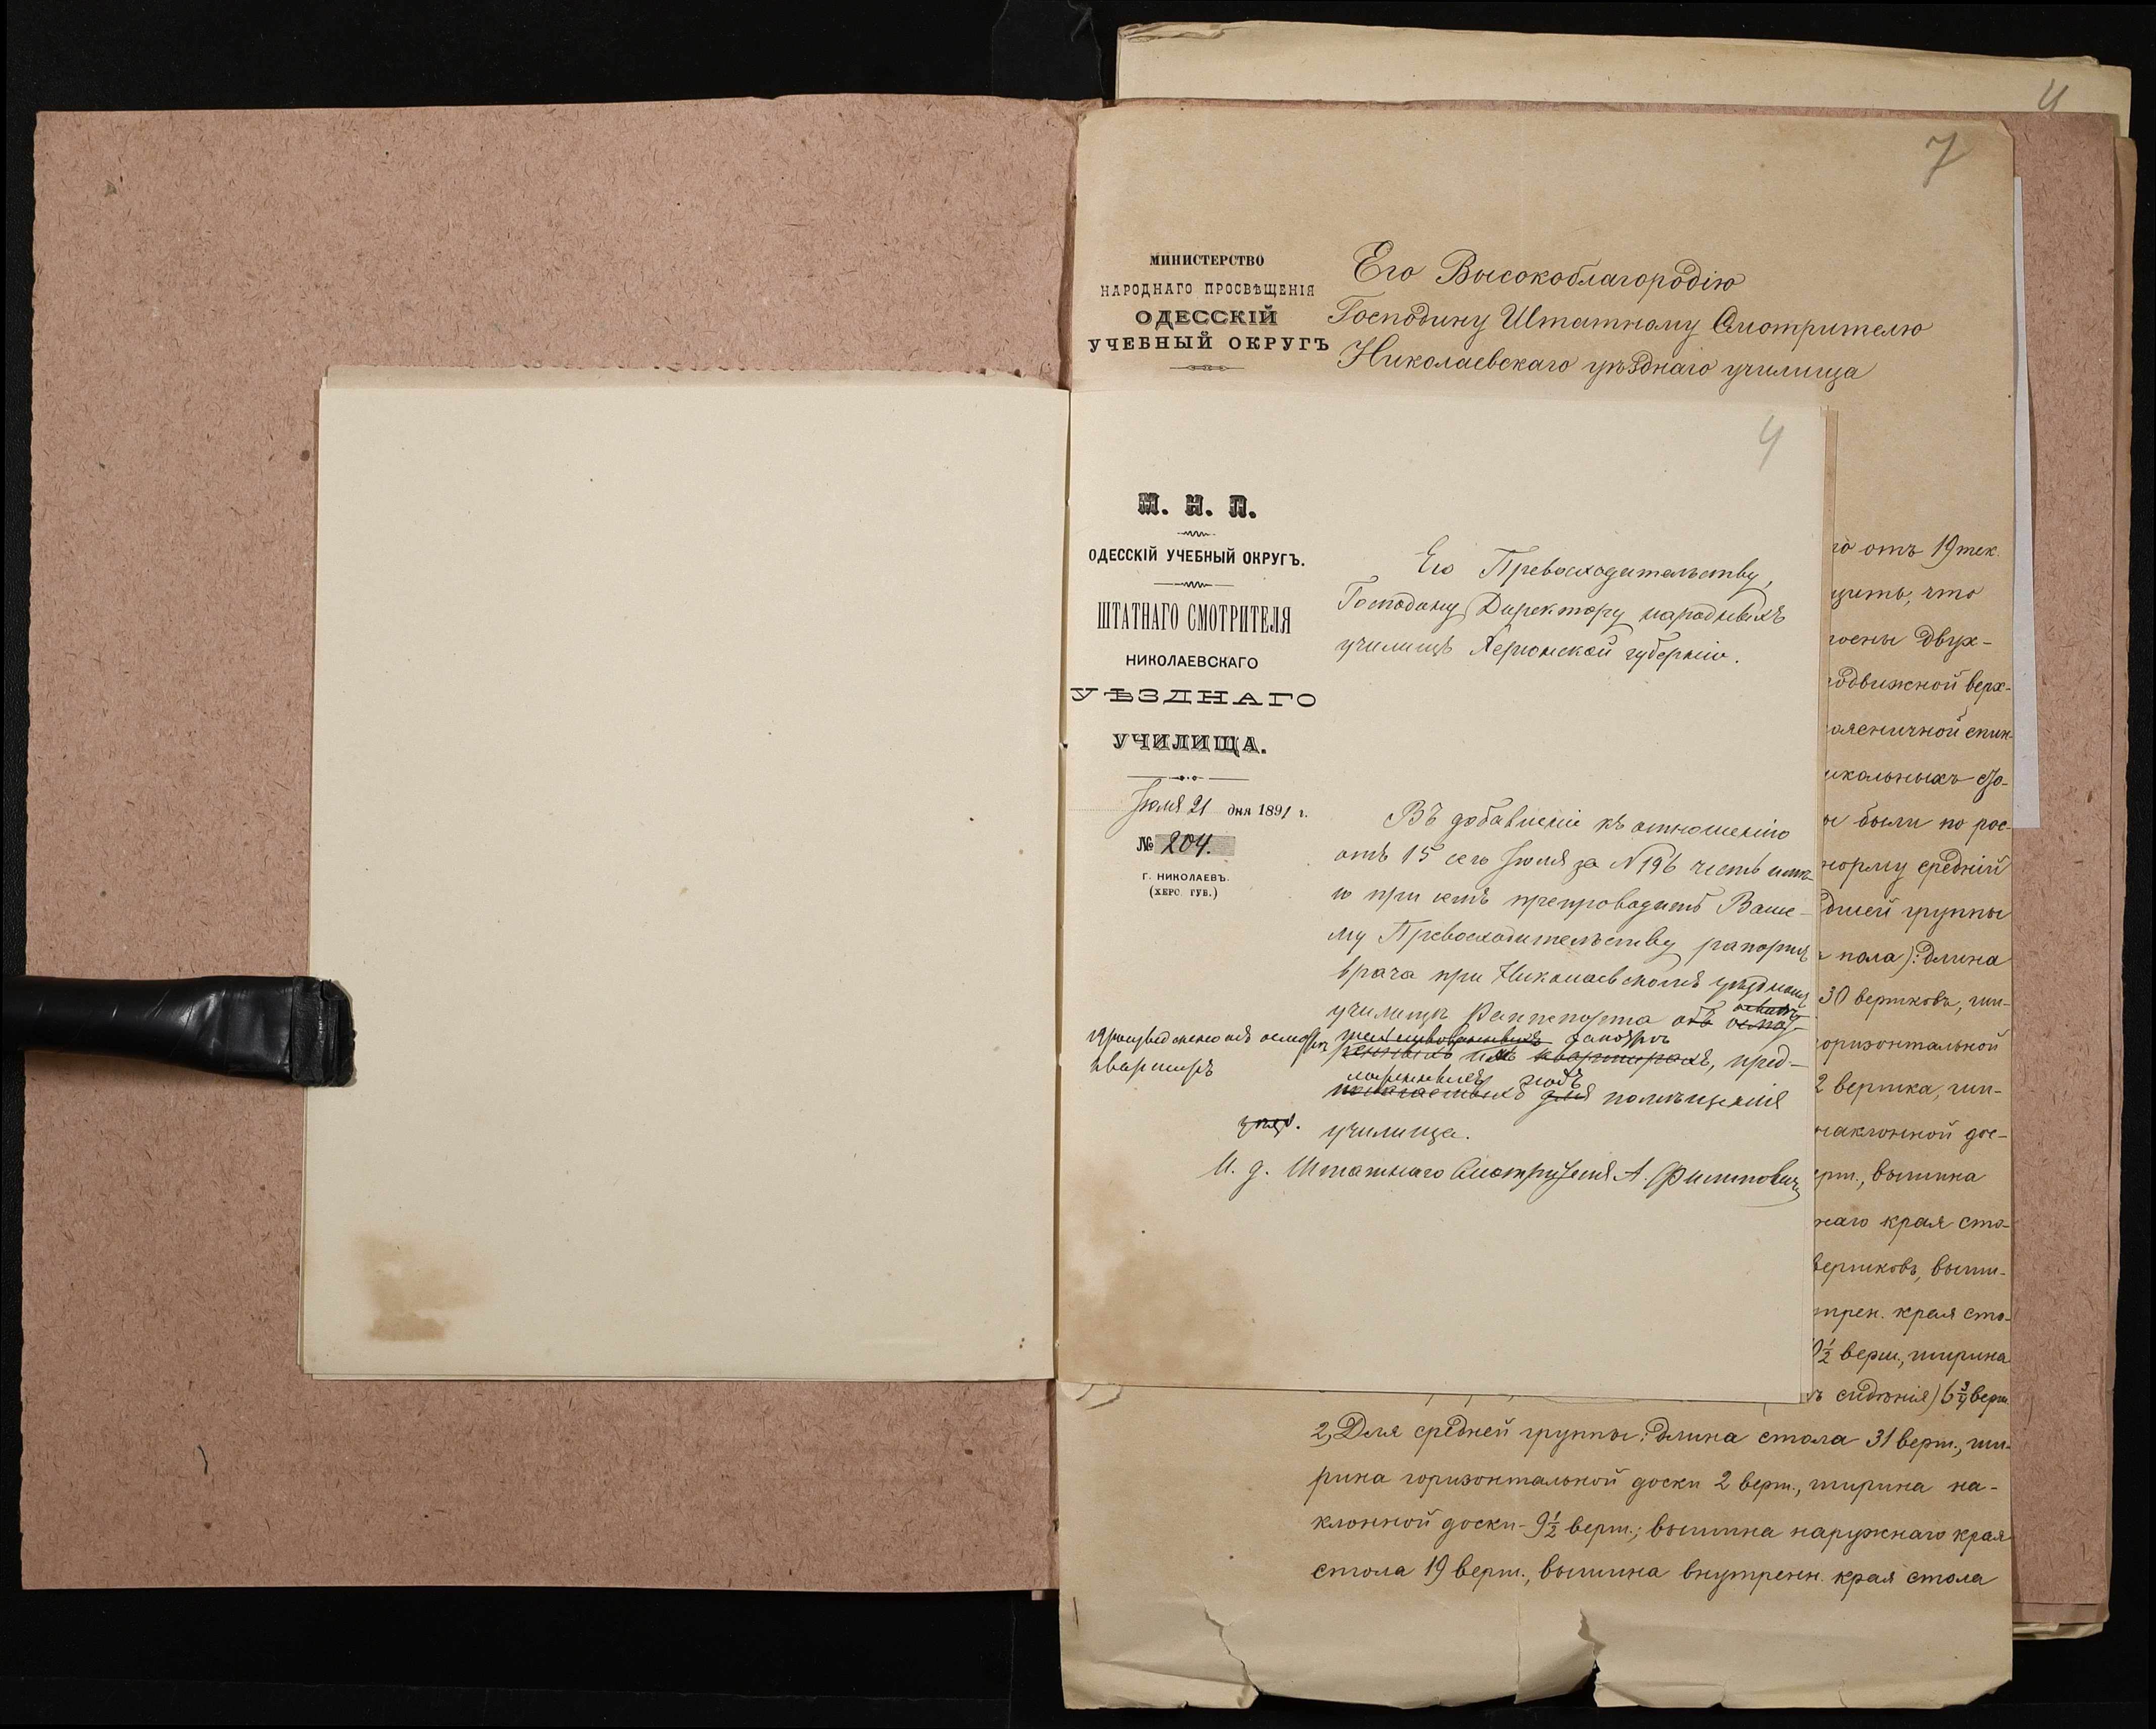 4
7
МИНИСТЕРСТВО
НАРОДНАГО ПРОСВѢЩЕНІЯ
ОДЕССКІЙ
УЧЕБНЫЙ ОКРУГЪ
Его Высокоблагородію
Господину Штатному Смотрителю
Николаевскаго уѣзднаго училища
4
М. Н. П.
ОДЕССКІЙ УЧЕБНЫЙ ОКРУГЪ.
ШТАТНАГО СМОТРИТЕЛЯ
НИКОЛАЕВСКАГО
УѢЗДНАГО
УЧИЛИЩА.
Іюля 21 дня 1891 г.
№ 204.
Г. НИКОЛАЕВЪ.
(ХЕРС. ГУБ.)
Его Превосходительству,
Господину Директору народныхъ
училищъ Херсонской губерніи.
Въ добавленіе къ отношенію
отъ 15 сего Іюля за N 196 честь имѣ-
ю при семъ препроводить Ваше-
му Превосходительству рапортъ
врача при Николаевскомъ уѣздномъ
училищѣ Раппопорта объ осмо-
произведенномъ осмотрѣ
квартиръ
квартирахъ, пред-
ложенныхъ подъ
для помѣщенія
училища.
И. д. Штатнаго Смотрителя А. Филипповичъ
го отъ 19 тек.
щить, что
роены двух-
подвижной верх-
оясничной спин-
икольныхъ сто-
ы были по рос-
норму средній
дшей группы
пола): длина
30 вершковъ, ши-
оризонтальной
2 вершка, ши-
наклонной дос-
ерш., вышина
наго края сто-
вершковъ, выши-
трен. края сто-
½ верш., ширина
сидѣнія) 6¾ верш.
2, Для средней группы: длина стола 31 верш., ши-
рина горизонтальной доски 2 верш., ширина на-
клонной доски - 9½ верш.; вышина наружнаго края
стола 19 верш., вышина внутренн. края стола